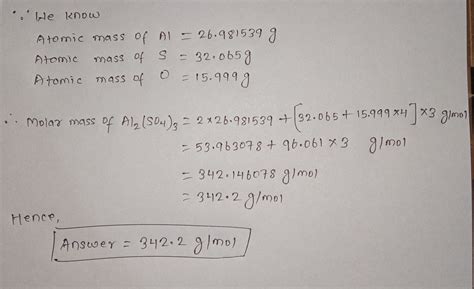 ∵ We know
Atomic mass of Al = 26.981539 g
Atomic mass of S = 32.065 g
Atomic mass of O = 15.999 g
∴ Molar mass of Al₂(SO₄)₃ = 2×26.981539 + [32.065 + 15.999×4]×3 g/mol
= 53.963078 + 96.061 × 3 g/mol
= 342.146078 g/mol
= 342.2 g/mol
Hence,
Answer = 342.2 g/mol